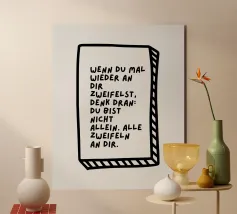 WENN DU MAL
WIEDER AN
DIR
ZWEIFELST,
DENK DRAN:
DU BIST
NICHT
ALLEIN. ALLE
ZWEIFELN
AN DIR.